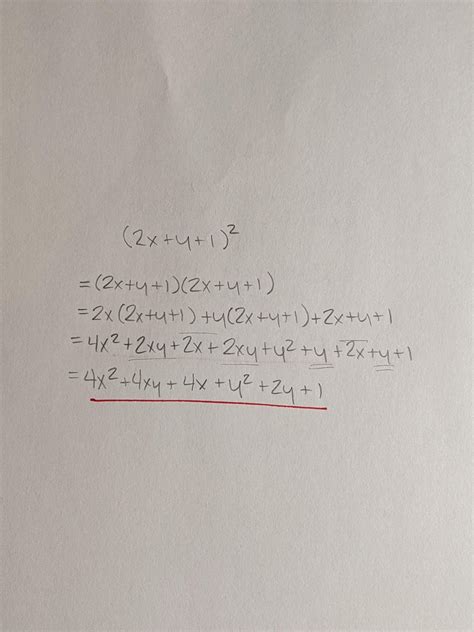 (2x+y+1)²
=(2x+y+1)(2x+y+1)
=2x(2x+y+1)+y(2x+y+1)+2x+y+1
=4x²+2xy+2x+2xy+y²+y+2x+y+1
=4x²+4xy+4x+y²+2y+1